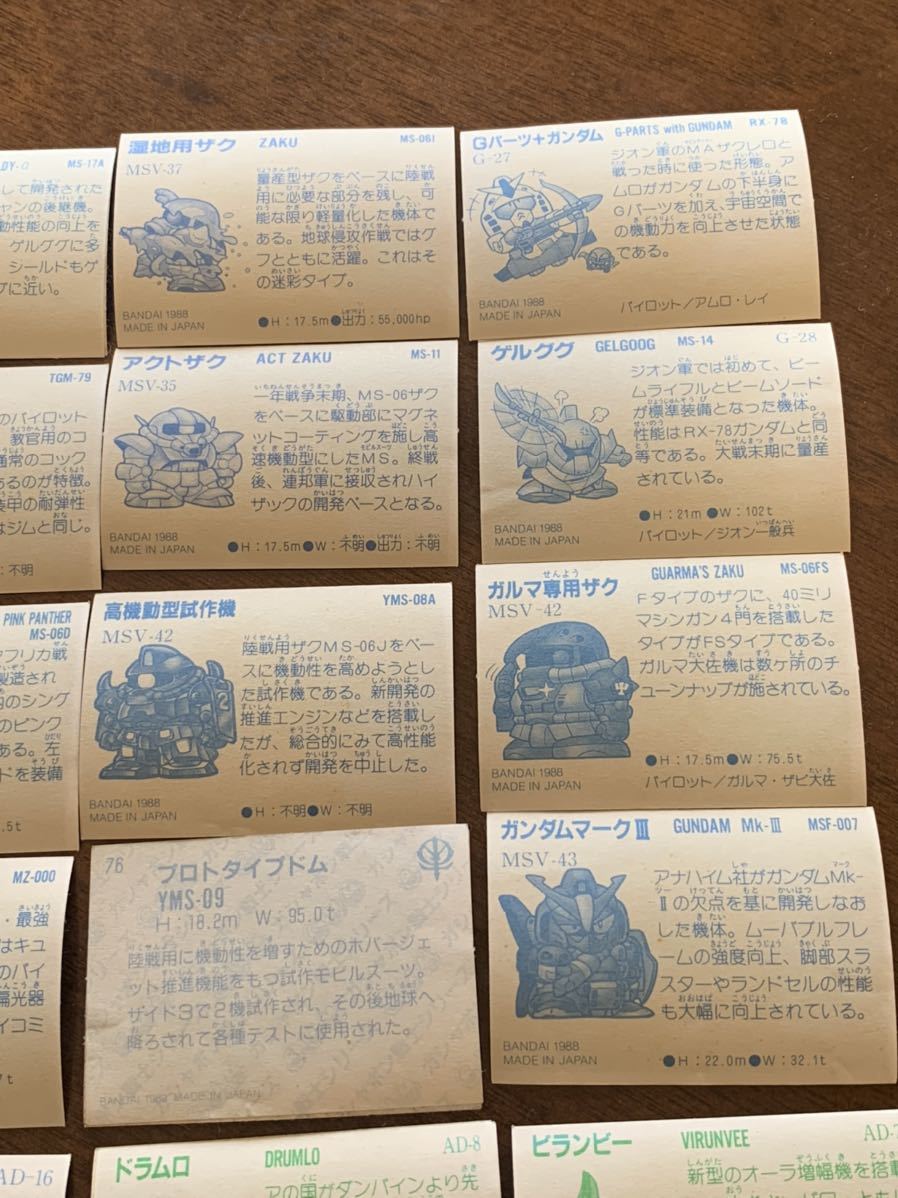 DY-α MS-17A
して開発された
ャンの後継機。
動性能の向上を
ゲルググに多
シールドもゲ
グに近い。
湿地用ザク ZAKU MS-06I
MSV-37
量産型ザクをベースに陸戦
用に必要な部分を残し、可
能な限り軽量化した機体で
ある。地球侵攻作戦ではグ
フとともに活躍。これはそ
の迷彩タイプ。
BANDAI 1988
MADE IN JAPAN
●H:17.5m●出力:55,000hp
Gパーツ+ガンダム G-PARTS with GUNDAM RX-78
G-27
ジオン軍のMAザクレロと
戦った時に使った形態。ア
ムロがガンダムの下半身に
Gパーツを加え、宇宙空間で
の機動力を向上させた状態
である。
BANDAI 1988
MADE IN JAPAN
パイロット/アムロ・レイ
TGM-79
のパイロット
教官用のコ
通常のコック
あるのが特徴。
装甲の耐弾性
はジムと同じ。
:不明
アクトザク ACT ZAKU MS-11
MSV-35
一年戦争末期、MS-06ザク
をベースに駆動部にマグネ
ットコーティングを施し高
速機動型にしたMS。終戦
後、連邦軍に接収されハイ
ザックの開発ベースとなる。
BANDAI 1988
MADE IN JAPAN
●H:17.5m●W:不明●出力:不明
ゲルググ GELGOOG MS-14 G-28
ジオン軍では初めて、ビー
ムライフルとビームソード
が標準装備となった機体。
性能はRX-78ガンダムと同
等である。大戦末期に量産
されている。
BANDAI 1988
MADE IN JAPAN
●H:21m ●W:102t
パイロット/ジオン一般兵
PINK PANTHER
MS-06D
フリカ戦
製造され
内のシング
のピンク
ある。左
ドを装備
.5t
高機動型試作機 YMS-08A
MSV-42
陸戦用ザクMS-06Jをベー
スに機動性を高めようとし
た試作機である。新開発の
推進エンジンなどを搭載し
たが、総合的にみて高性能
化されず開発を中止した。
BANDAI 1988
MADE IN JAPAN
●H:不明●W:不明
ガルマ専用ザク GUARMA'S ZAKU MS-06FS
MSV-42
Fタイプのザクに、40ミリ
マシンガン4門を搭載した
タイプがFSタイプである。
ガルマ大佐機は数ヶ所のチ
ューンナップが施されている。
BANDAI 1988
MADE IN JAPAN
●H:17.5m●W:75.5t
パイロット/ガルマ・ザビ大佐
MZ-000
・最強
はキュ
のパイ
偏光器
イコミ
t
76
プロトタイプドム
YMS-09
H:18.2m W:95.0t
陸戦用に機動性を増すためのホバージェ
ット推進機能をもつ試作モビルスーツ。
サイド3で2機試作され、その後地球へ
降ろされて各種テストに使用された。
BANDAI 1989 MADE IN JAPAN
ガンダムマークⅢ GUNDAM Mk-Ⅲ MSF-007
MSV-43
アナハイム社がガンダムMk-
Ⅱの欠点を基に開発しなお
した機体。ムーバブルフレ
ームの強度向上、脚部スラ
スターやランドセルの性能
も大幅に向上されている。
BANDAI 1988
MADE IN JAPAN
●H:22.0m●W:32.1t
AD-16
ドラムロ DRUMLO AD-8
アの国がダンバインより先
ビランビー VIRUNVEE AD-7
新型のオーラ増幅機を搭載